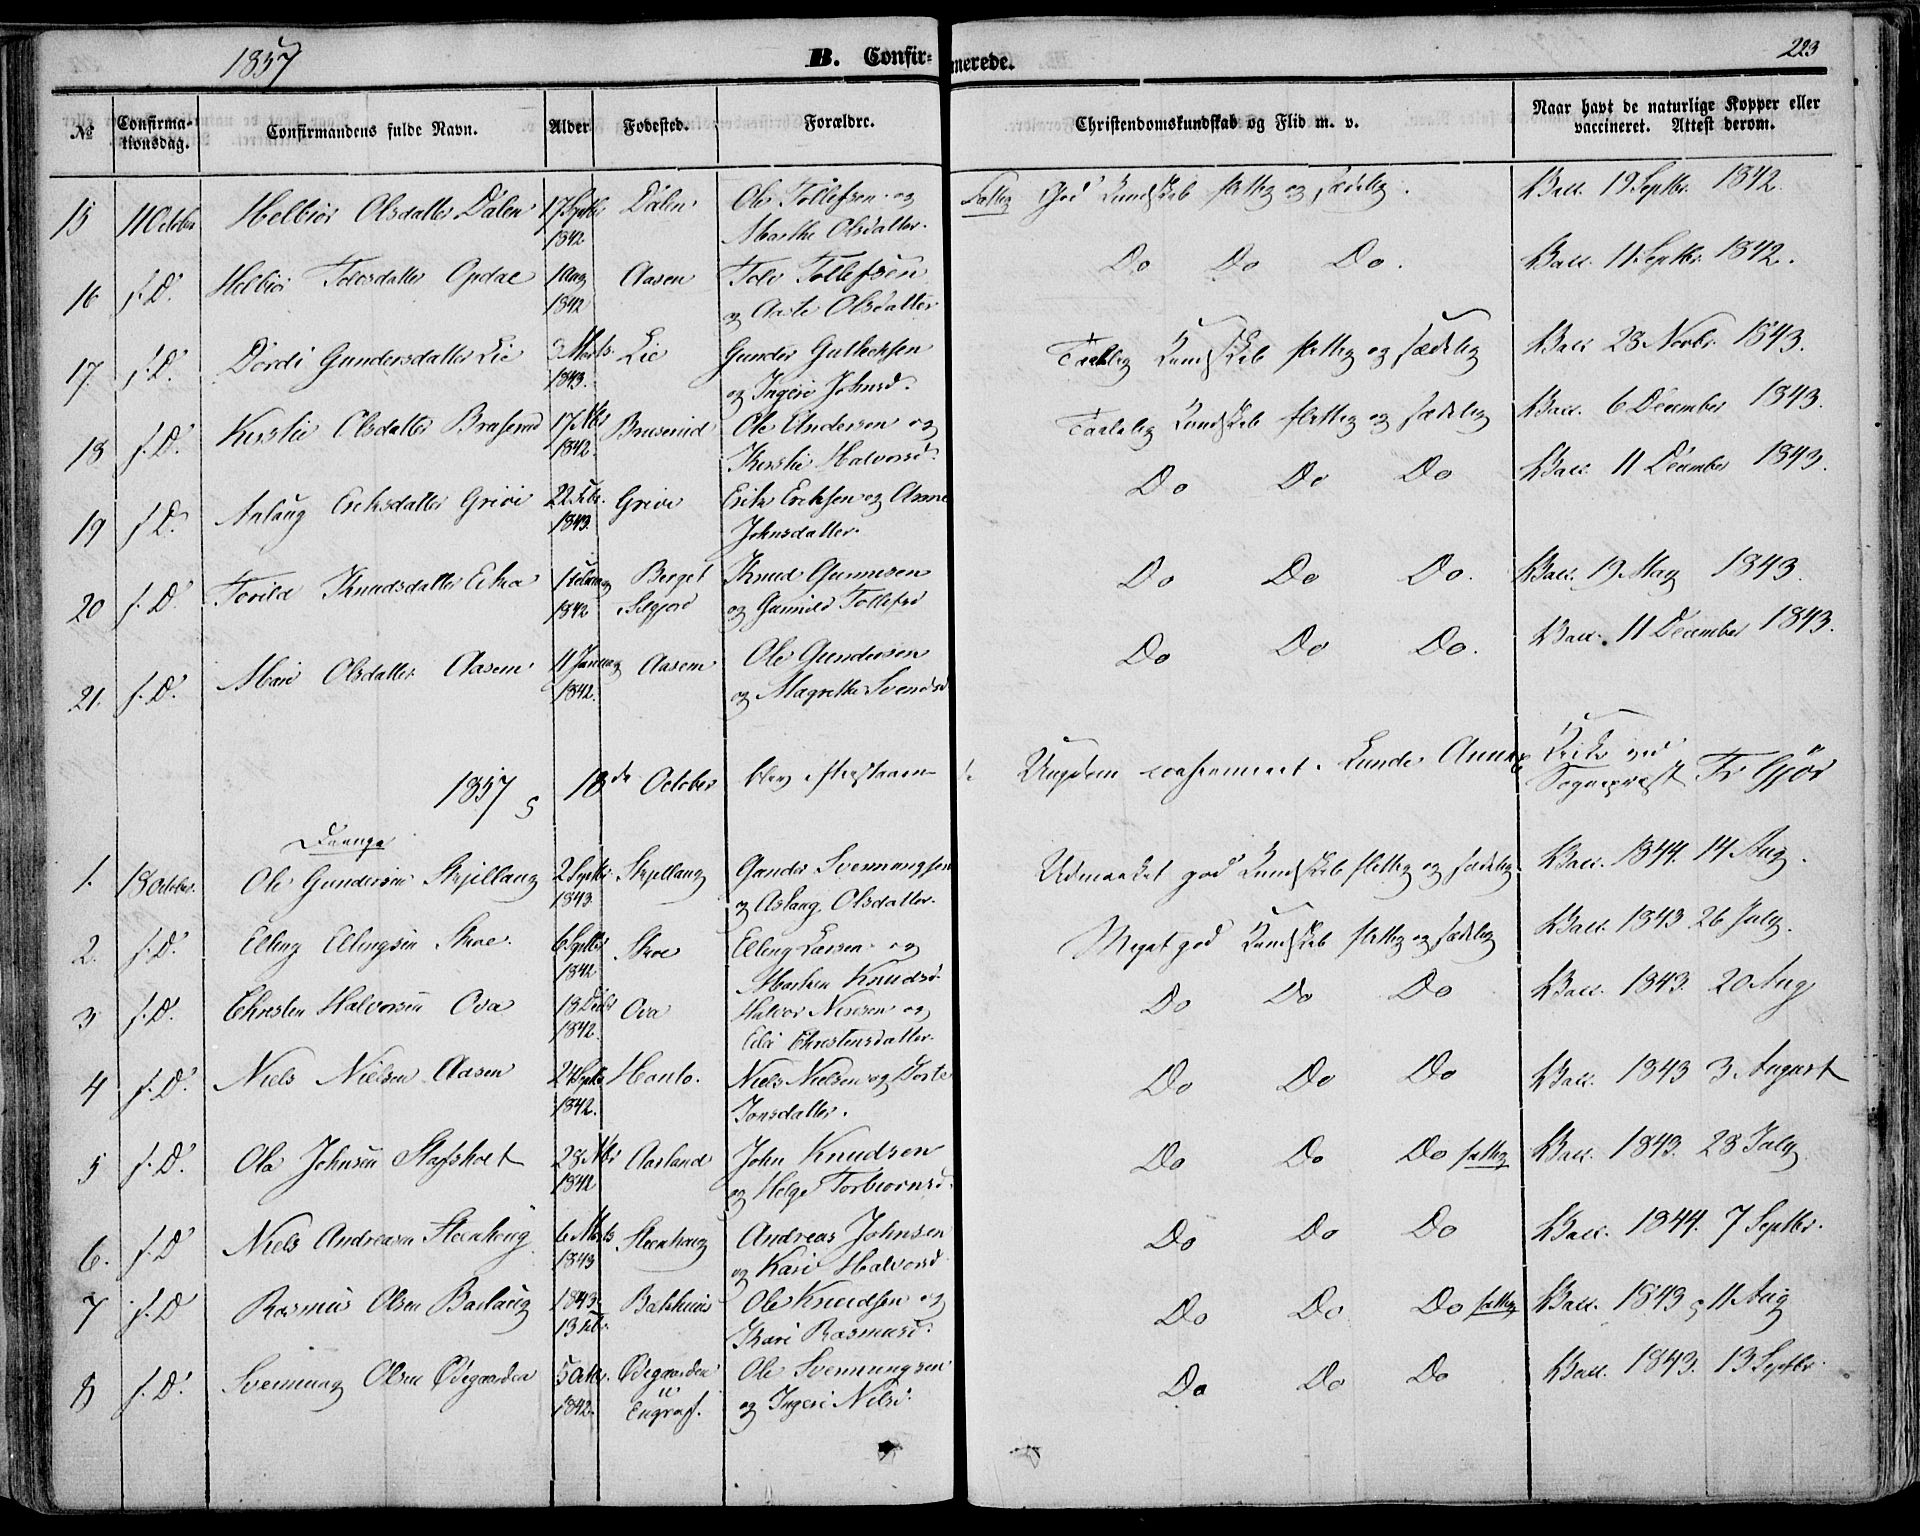 1857
B. Confirmerede.
223
No
Confirmationsdag.
Confirmandens fulde Navn.
Alder
Fødested.
Forældre.
Christendomskundskab og Flid m. v.
Naar havt de naturlige Kopper eller vaccineret. Attest derom.
15 11 October Helbiør Olsdatter Dalen 17 Septbr 1842 Dalen Ole Tollefsen og Marthe Olsdatter. God Kundskab flittig og sædelig. Vacc. 19 Septbr. 1842.
16 f. D. Helbiør Tovesdatter Opdal 1842 Aasen Tollefsen og Olsdatter Do Do Do. Vacc. 11 Septbr. 1842.
17 f. D. Dordi Gundersdatter Lie 3 Marts 1843. Lie Gunder Gullecksen og Ingeri Johnsd. Taalelig Kundskab flittig og sædelig Vacc. 23 Novbr. 1843.
18 f. D. Kirstie Olsdatter 1842. Bruserud Ole Andersen og Kirstie Halvorsd. Taalelig Kundskab flittig og sædelig Vacc. 6 December 1843.
19 f. D. Aslaug Eriksdatter Grivi 22 Febr. 1843. Grivi Erik Eriksen og Anne Johnsdatter. Do Do Do Vacc. 11 December 1843.
20 f. D. Torild Knudsdatter Eika 1842 Berget Selgjord Knud Gunnesen og Gunild Tollefsd Do Do Do. Vacc. 19 May 1843.
21. f. D. Mari Olsdatter Aasem 11 Januar 1842. Aasem Ole Gundersen og Magrethe Svendsd Do Do Do. Vacc. 11 December 1843.
1857 18de October blev efterstaaende Ungdom confirmeret i Lunde Annex Kirke ved
Sognepræst Fr. Gjör
Drenge
1. 18 October. Ole Gundersen Skjellaug 2 Septbr 1843 Skjellaug Gunder Svennungsen og Aslaug Olsdatter. Udmærket god Kundskab flittig og sædelig. Vacc. 1844. 14 Aug.
2. f. D. Elling Ellingsen Skoe. 6 Septbr 1842 Skoe Elling Larsen og Marthea Knudsd. Meget god Kundskab flittig og sædelig Vacc. 1843 26 July.
3 f. D. Christen Halvorsen Ova 1842. Ova Halvor Nissen og Christensdatter. Do Do Do Vacc. 1843. 20 Aug
4 f. D. Niels Nielsen Aasen 24 Septbr 1842. Hanto. Niels Nielsen og Dorte Jonsdatter. Do Do Do Vacc. 1843 3 August
5 f. D. Ole Johnsen Stafsholt 1842 Aasland John Knudsen og Helge Torbiornsd. Do Do Do fattig Vacc. 1843. 28 July
6. f. D Niels Andreasen Steenhoug 6 Marts 1843 Steenhoug Andreas Johnsen og Kari Halvorsd Do Do Do Vacc. 1844. 7 Septbr.
7 f. D Rasmus Olsen 1843. 13 Febr. Bakhuus Ole Knudsen og Kari Rasmusd. Do Do Do fattig Vacc. 1843 11 Aug
8 f. D. Svennung Olsen Ødegaarden 5 Octbr. 1842. Ødegaarden Ole Svennungsen og Ingeri Nilsd. Do Do Do Vacc. 1843. 13 Septbr.